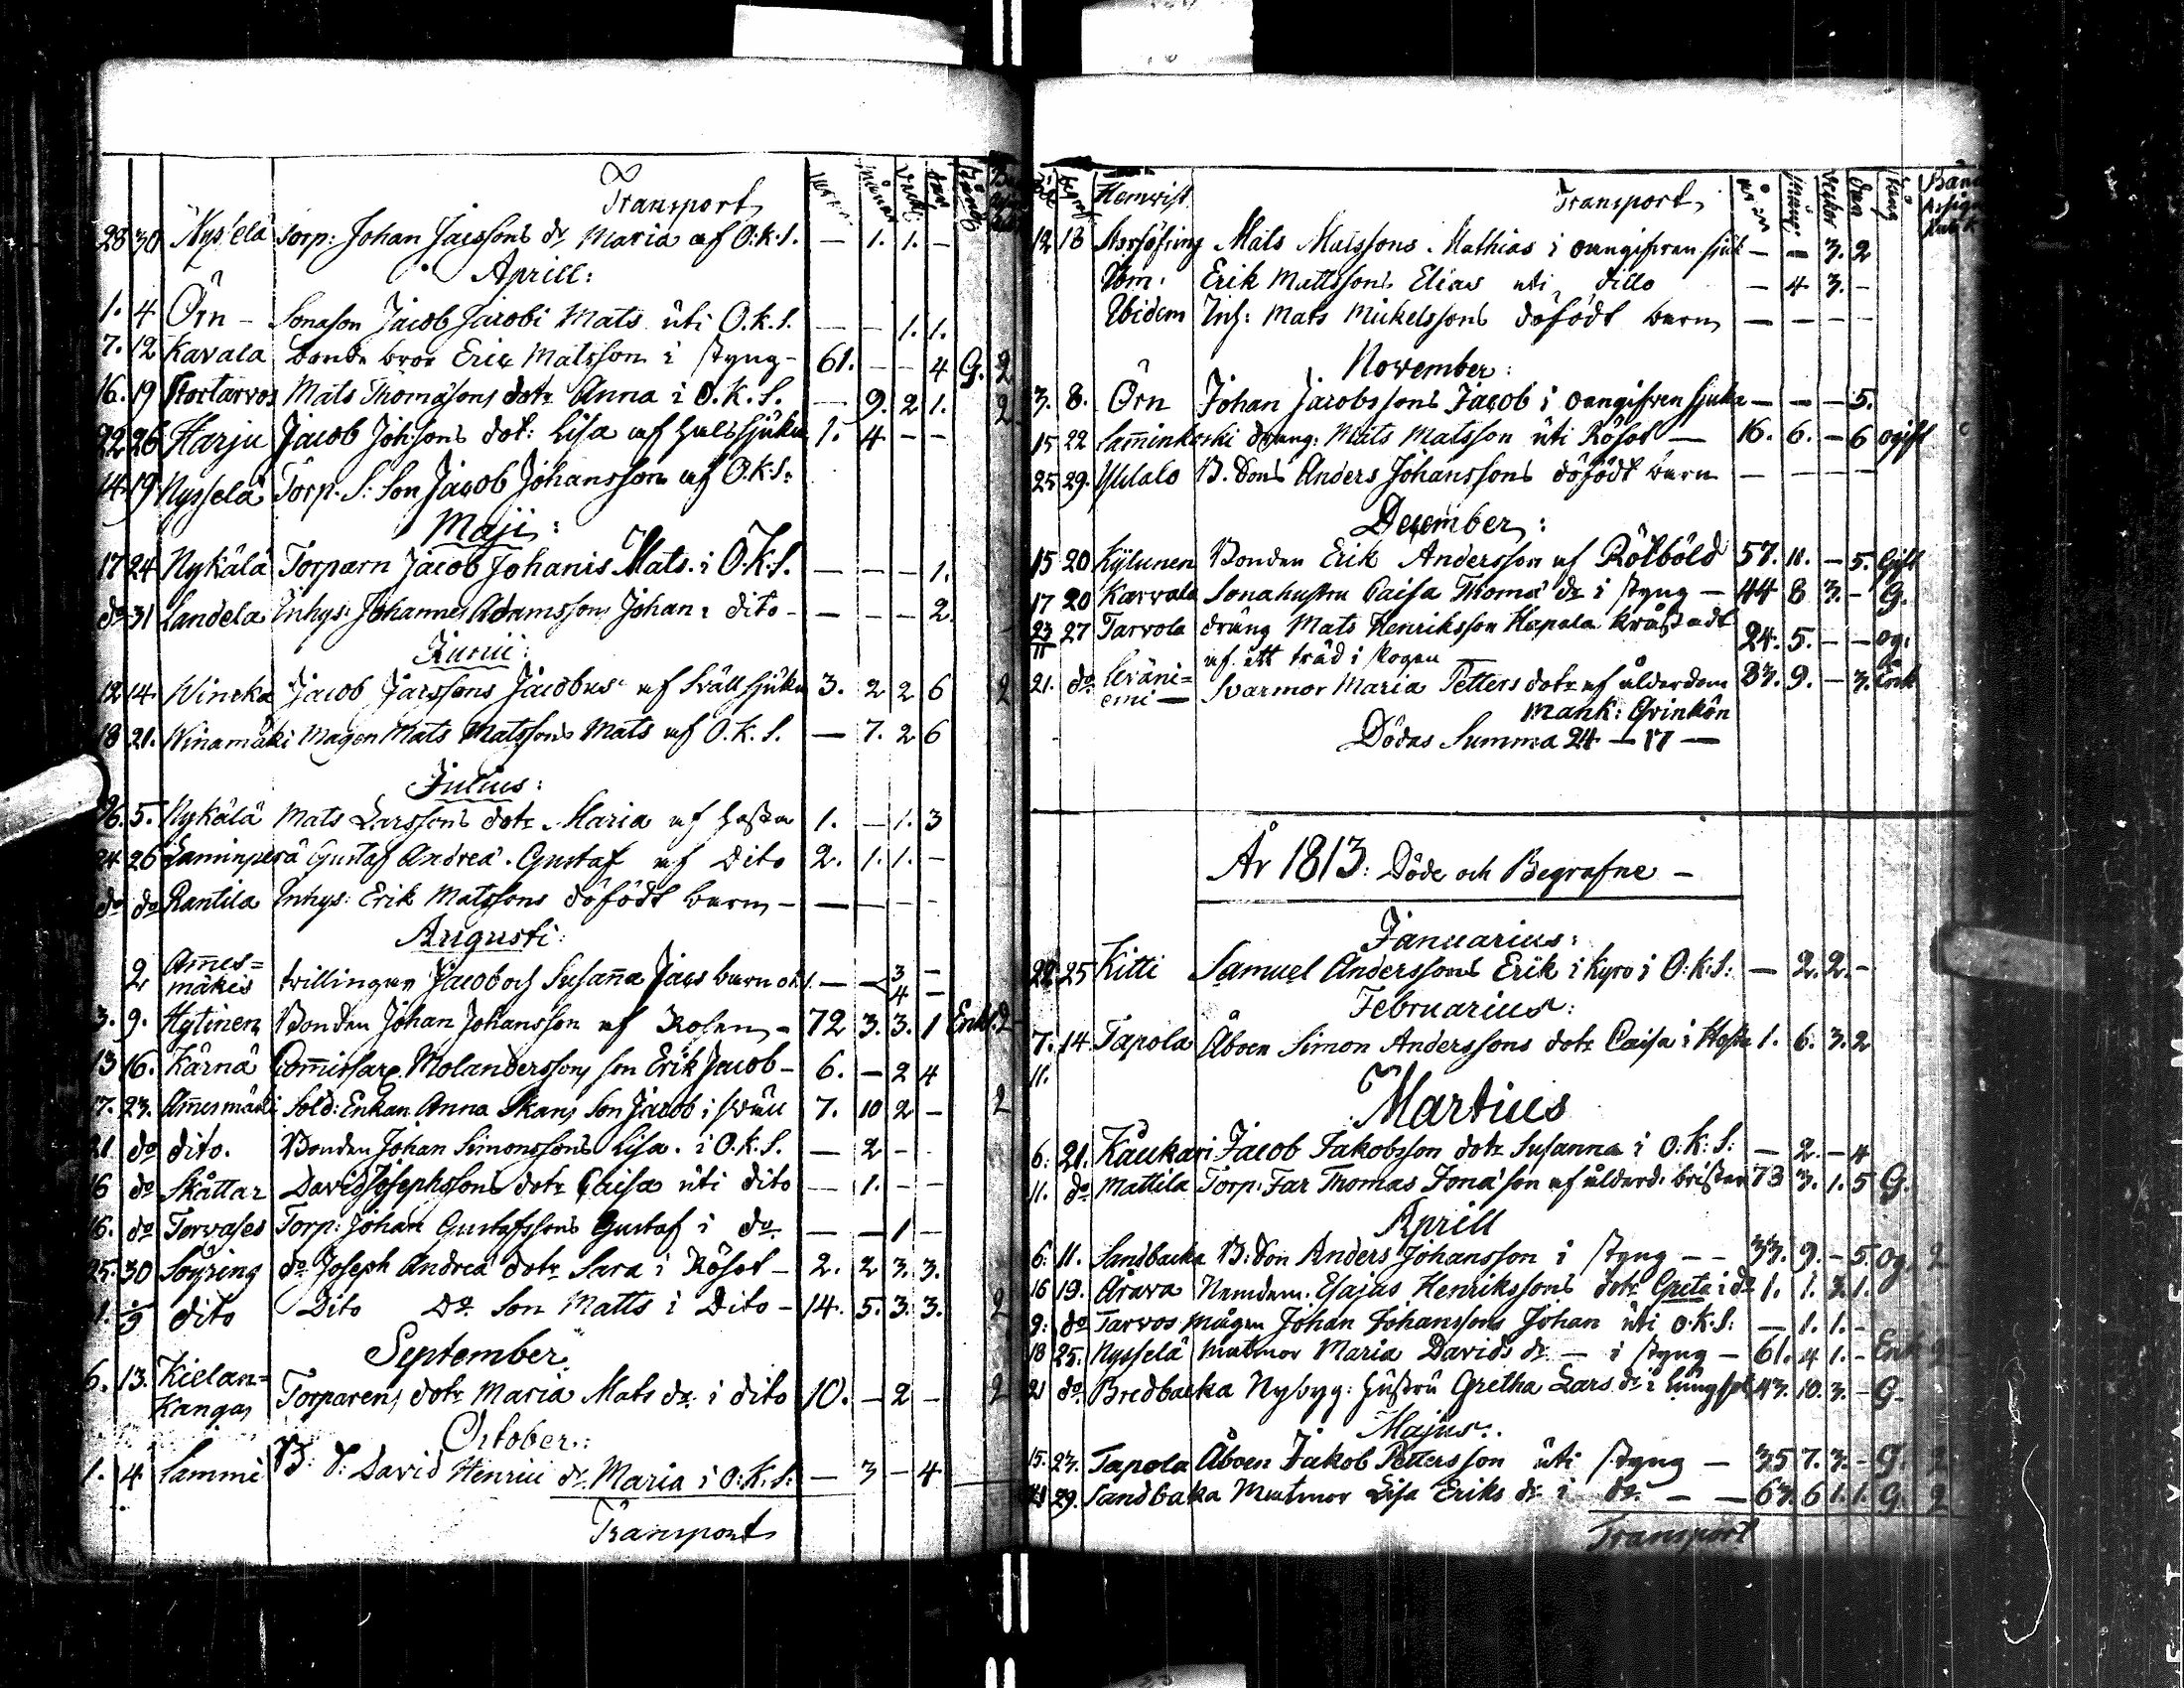 Transport
28 30 Nyssela Torp: Johan Jacssons dr Maria af O:k:s. — 1. 1. —
Aprill:
1. 4 Örn — Sonason Jacob Jacobi Mats uti O.k.s. — — 1. 1.
7. 12 Kavala bonde bror Eric Matsson i styng — 61. — — 4 G. 2
16. 19 Stortarvos Mats Thomæsons dotr Anna i O.K.S. — 9. 2 1. 2
22 26 Harju Jacob Johsons dot: Lisa af halssjuka 1. 4 — —
14. 19. Nysselä Torp. S: Son Jacob Johansson af O.k.s:
Maji:
17 24 Nykälä Torparn Jacob Johanis Mats. i O.K.S. — — — 1.
do 31 Landela Inhys: Johannes Adamssons Johan i dito — — — — 2.
Junii:
12 14. Wincka Jacob Jacssons Jacobus af Svällsjuka 3. 2 2 6 2
18 21. Winamäki Magen Mats Matssons Mats af O.k.s. — 7. 2 6
Julius:
26. 5. Nykälä Mats Larssons dotr Maria af hosta 1. — 1. 3
24 26 Laminperä Gustaf Andreæ. Gustaf af dito 2. 1. 1. —
do do Rantila Inhys: Erik Matssons döfödt barn — — — — —
Augusti:
2 Am̄es=
mäkis tvillingar Jacob och Susan̄a Jacs barn — — 3 —
4 —
3. 9. Hytinen Bonden Johan Johansson af Rosen — 72 3. 3. 1 Enkl. 2
13 16. Kärnä Com̄issar. Molanderssons son Erik Jacob — 6. — 2 4
17. 23. Am̄esmäki Sold: Enkan Anna Skans Son Jacob i 7. 10 2 — 2
21 do dito. Bonden Johan Simonssons Lisa. i O.k.s. — 2 — —
16 do Skåttar David Josephssons dotr Caisa uti dito — 1. — —
16. do Torvases Torp: Johan Gustafssons Gustaf i do — — 1 —
25. 30 Soyring do Joseph Andreæ dotr Sara i Rösot — 2. 2 3. 3.
1. 9 dito Dito Do Son Matts i Dito — 14. 5. 3. 3. 2
September
6. 13. Kielan=
Kangas Torparens dotr Maria Mats dr i dito 10. — 2 — 2
October:
1. 4 Lammi B: d: David Henrici dr Maria i O:K:S: — 3 — 4
Transport
Hemvist Transport
12 18 Norrsöfring Mats Matssons Mathias i oangifven sjuk — — 3. 2
Ibm: Erik Mattssons Elias uti ditto — 4 3. —
Ibidem Inh: Mats Mickelssons döfödt barn — — — —
November:
3. 8. Örn Johan Jacobssons Jacob i oangifven sjuka — — — 5.
15 22 Lam̄inkoski dräng: Mats Matsson uti Rösot — 16. 6. — 6 ogift
25 29. Ylitalo B. Sons Anders Johanssons döfödt barn — — — —
December:
15 20 Kylunen Bonden Erik Andersson af Rötböld 57. 11. — 5. Gift
17 20 Karvala Sonahustru Caisa Thomæ dr i styng — 44 8 3. — G.
23/11 27 Tarvola dräng Mats Henriksson Hapala kråssadt
af ett träd i skogen 24. 5. — — og.
21. do Leväni=
emi — Svarmor Maria Petters dotr af ålderdom 83. 9. — 3.
Mank: Qvinkön
Dödas Summa 24 — 17 —
År 1813: Döde och Begrafne —
Januarius:
22. 25 Kitti Samuel Anderssons Erik i Kyro i O:k:s: — 2. 2. —
Februarius:
7. 14. Tapola Åboen Simon Anderssons dotr Caisa i Hosta 1. 6. 3. 2
11.
Martius
6. 21. Kaukari Jacob Jakobsson dotr Susanna i O:K:S: — 2. — 4
11. do Mattila Torp: Far Thomas Jonæ son af ålderd. brister 73 3. 1. 5 G.
Aprill
6. 11. Sandbacka B: Son Anders Johansson i styng — — 33. 9. — 5. Og. 2
16 19. Årava Nemdem. Esajas Henrikssons dotr Greta i do 1. 1. 3. 1.
9: do Tarvos mågen Johan Johanssons Johan uti O.k.s: — 1. 1. —
18 25. Nysselä Matmor Maria Davids dr — i styng — 61. 4 1. — Enk 2
21 do Bredbacka Nybyg: hustru Gretha Lars dr i lungsot 43. 10. 3. — G.
Majus:
15. 23. Tapola Åboen Jakob Pettersson uti styng — 35 7. 3. — G. 2
21 29. Sandbaka Matmor Lisa Eriks dr i do — — 63. 6 1. 1. G. 2
Transport